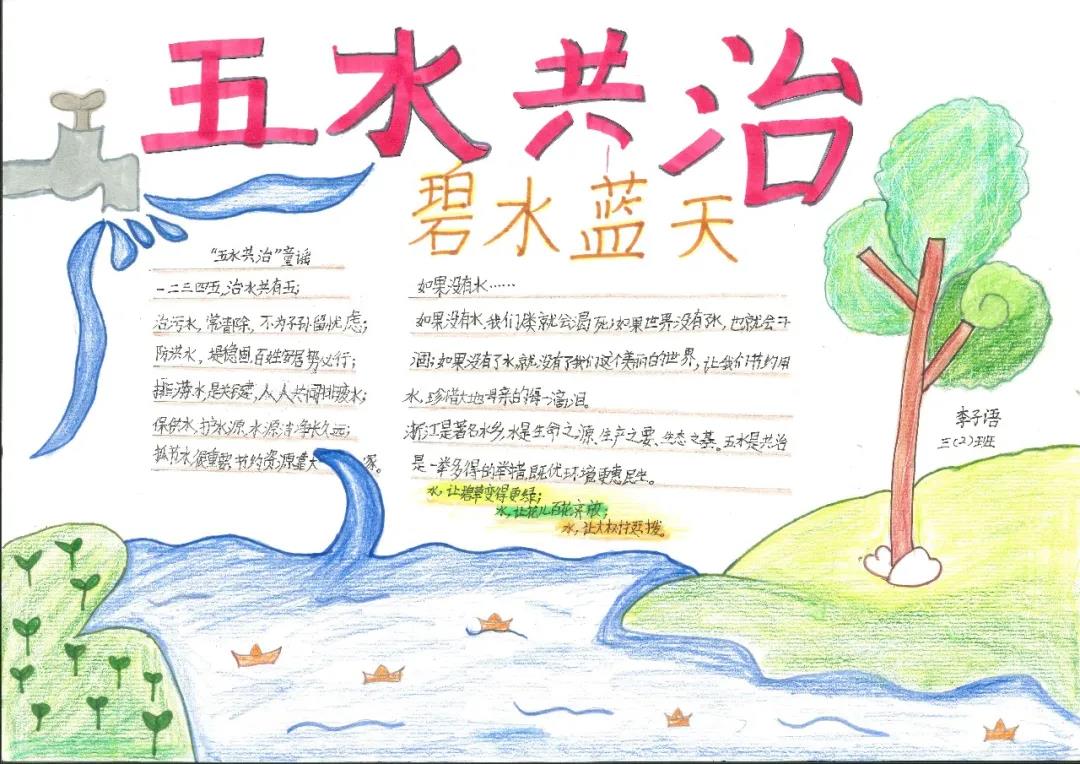 五水共治
碧水蓝天
"五水共治"童谣
一二三四五,治水共有五;
治污水,常清除,不为子孙留忧虑;
防洪水,堤稳固,百姓安居势必行;
排涝水,是关键,人人共同排废水;
保供水,护水源,水源洁净永久远;
抓节水,很重要,节约资源靠大家。
如果没有水……
如果没有水,我们人类就会渴死;如果世界没有水,也就会干
涸;如果没有了水,就没有了我们这个美丽的世界,让我们节约用
水,珍惜大地母亲的每一滴泪。
浙江是著名水乡,水是生命之源、生产之要、生态之基。五水是共治
是一举多得的举措,既优环境更惠民生。
水,让碧草变得更绿;
水,让花儿百花齐放;
水,让大树挺拔。
李子语
三(2)班